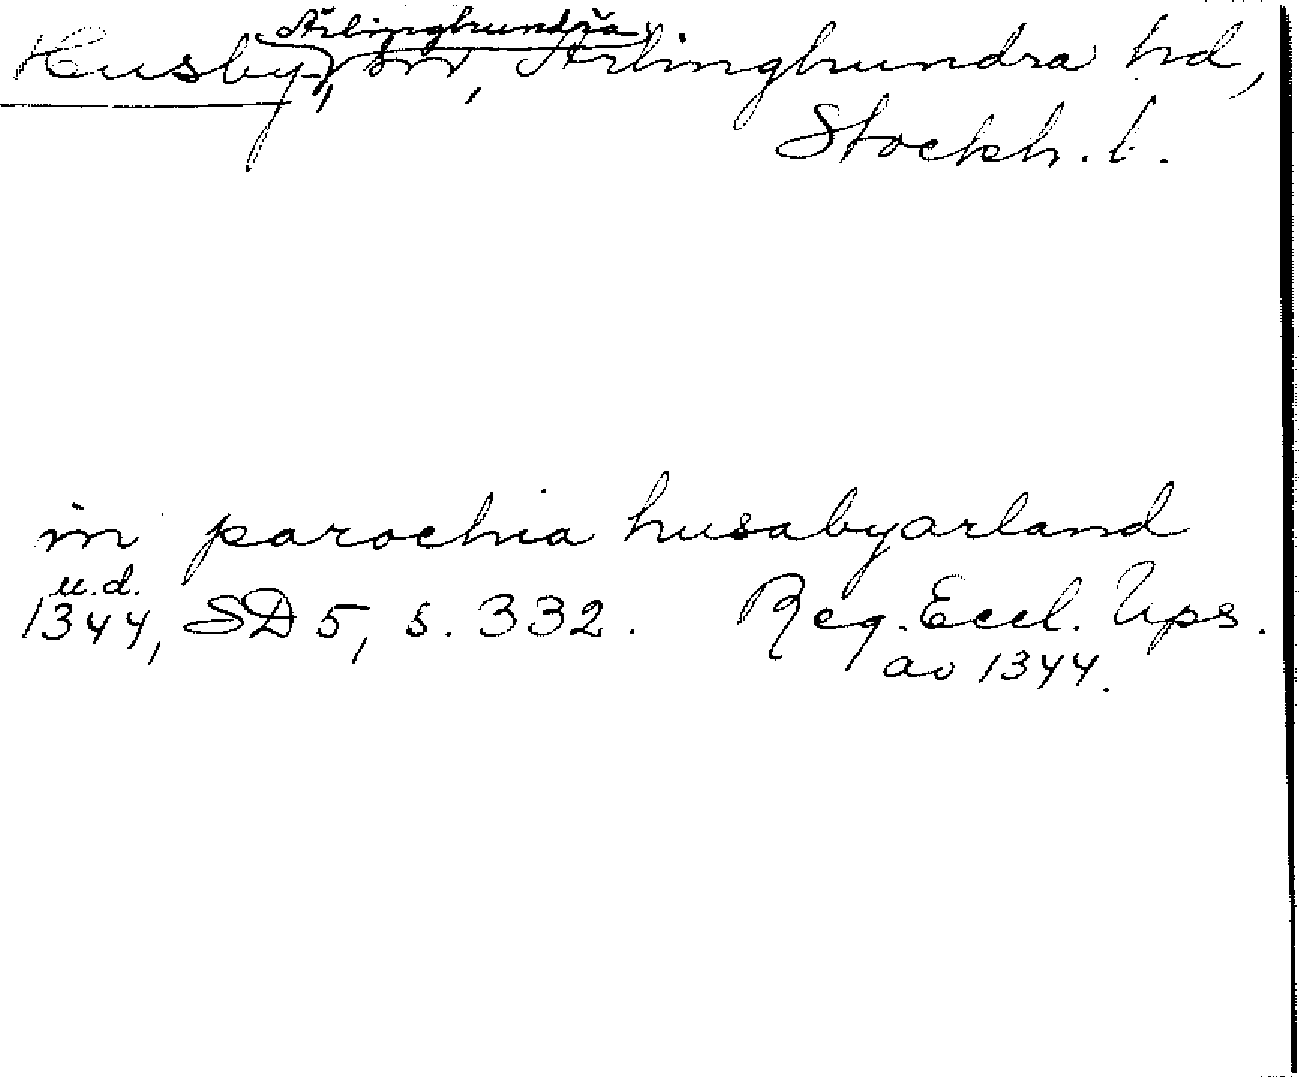 Ärlinghundra
Husby, sn, Ärlinghundra hd,
Stockh. l.
in parochia husabyarland
u.d.
1344, SD 5, s. 332. Reg. Eccl. Ups.
av 1344.